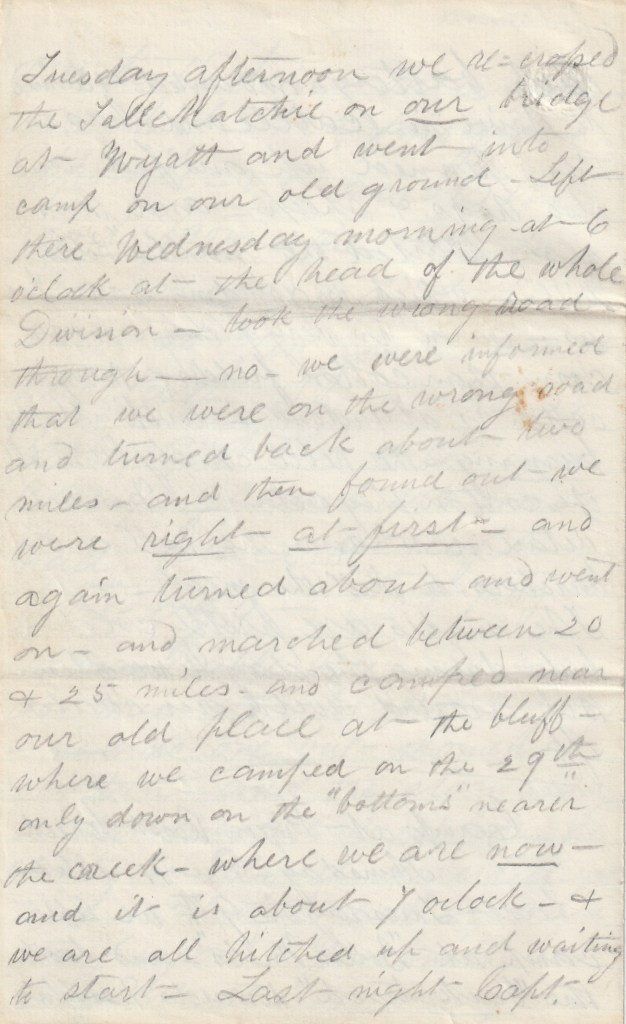 Tuesday afternoon we re=crossed
the Tallehatchie on our bridge
at Wyatt and went into
camp on our old ground - Left
there Wednesday morning at 6
oclock at the head of the whole
Division - took the wrong road -
through - no - we were informed
that we were on the wrong road
and turned back about two
miles - and then found out we
were right at first - and
again turned about and went
on - and marched between 20
& 25 miles - and camped near
our old place at the bluff -
where we camped on the 29th
only down on the "bottoms" nearer
the creek - where we are now -
and it is about 7 oclock - &
we are all hitched up and waiting
to start - Last night Capt.